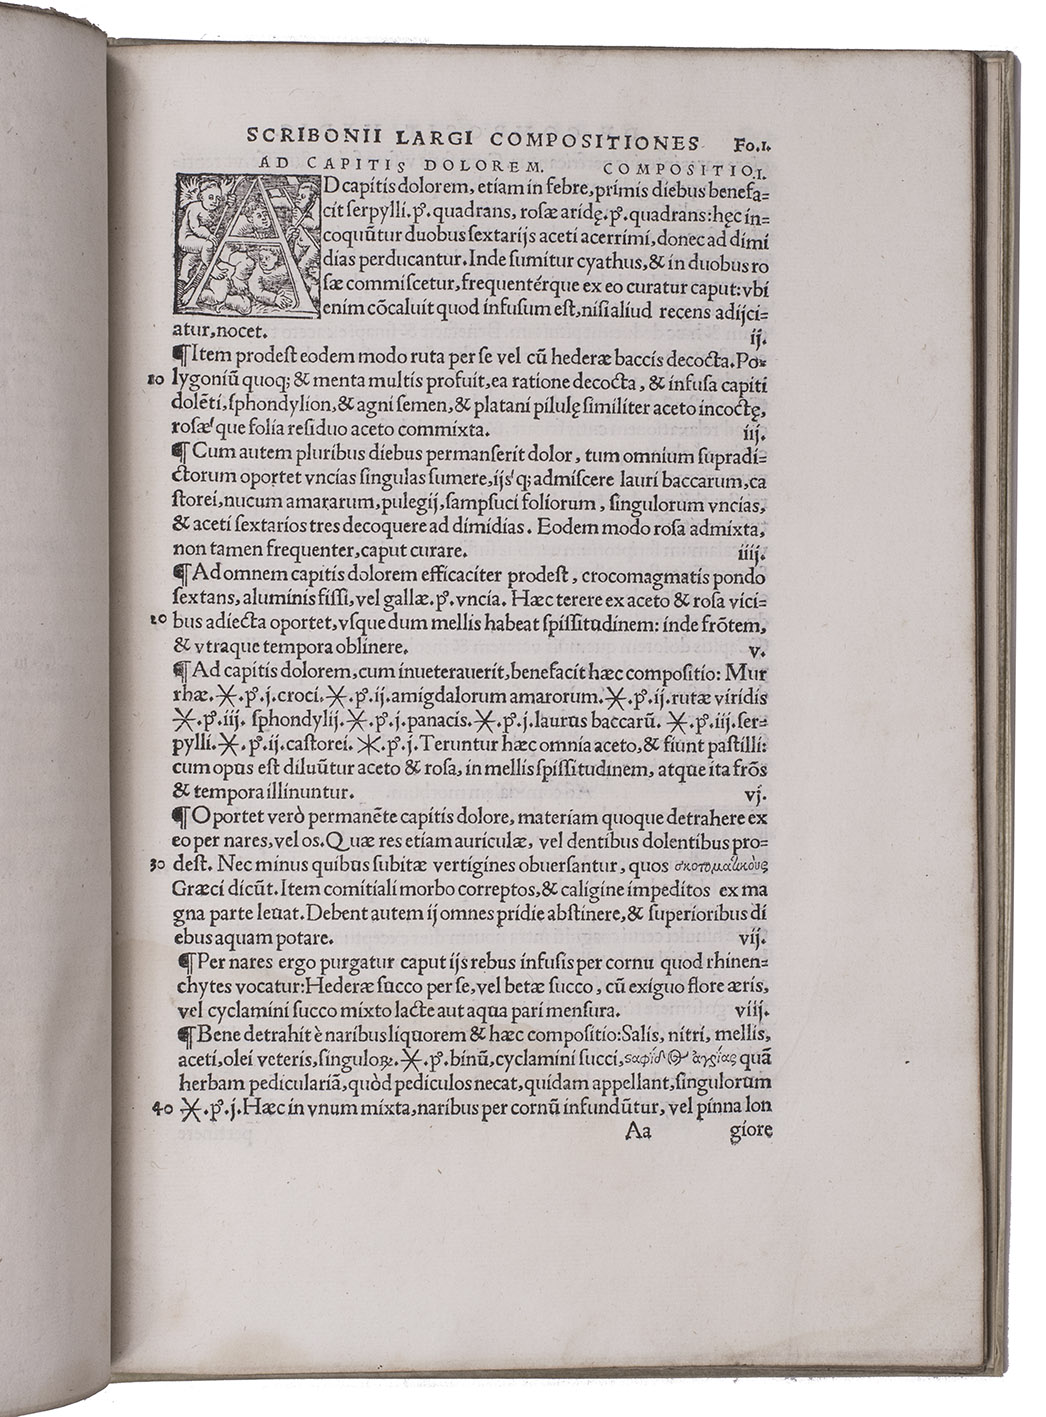 SCRIBONII LARGI COMPOSITIONES Fo.1.
AD CAPITIS DOLOREM. COMPOSITIO.I.
AD capitis dolorem, etiam in febre, primis diebus benefa=
cit serpylli.p̊. quadrans, rosæ aridę.p̊. quadrans:hęc in=
coquũtur duobus sextarijs aceti acerrimi, donec ad dimi
dias perducantur. Inde sumitur cyathus, & in duobus ro
sæ commiscetur, frequentérque ex eo curatur caput: vbi
enim cõcaluit quod infusum est, nisi aliud recens adijci=
atur, nocet. ij.
¶Item prodest eodem modo ruta per se vel cũ hederæ baccis decocta. Po=
10 lygoniũ quoq; & menta multis profuit, ea ratione decocta, & infusa capiti
dolẽti, sphondylion, & agni semen, & platani pilulę similiter aceto incoctę,
rosæ'que folia residuo aceto commixta. iij.
¶Cum autem pluribus diebus permanserit dolor, tum omnium supradi=
ctorum oportet vncias singulas sumere, ijs'q; admiscere lauri baccarum, ca
storei, nucum amararum, pulegij, sampsuci foliorum, singulorum vncias,
& aceti sextarios tres decoquere ad dimidias. Eodem modo rosa admixta,
non tamen frequenter, caput curare. iiij.
¶Ad omnem capitis dolorem efficaciter prodest, crocomagmatis pondo
sextans, aluminis fissi, vel gallæ.p̊. vncia. Hæc terere ex aceto & rosa vici=
20 bus adiecta oportet, vsque dum mellis habeat spissitudinem: inde frõtem,
& vtraque tempora oblinere. v.
¶Ad capitis dolorem, cum inueterauerit, benefacit hæc compositio: Mur
rhæ.X.p̊.j.croci.X.p̊.ij.amigdalorum amarorum.X.p̊.ij.rutæ viridis
X.p̊.iij. sphondylij.X.p̊.j.panacis.X.p̊.j.laurus baccarũ. X.p̊.iij.ser=
pylli.X.p̊.ij.castorei. X.p̊.j. Teruntur hæc omnia aceto, & fiunt pastilli:
cum opus est diluũtur aceto & rosa, in mellis spissitudinem, atque ita frõs
& tempora illinuntur. vj.
¶Oportet verò permanẽte capitis dolore, materiam quoque detrahere ex
eo per nares, vel os. Quæ res etiam auriculæ, vel dentibus dolentibus pro=
30 dest. Nec minus quibus subitæ vertigines obuersantur, quos σκοτοματικοὺς
Græci dicũt. Item comitiali morbo correptos, & caligine impeditos ex ma
gna parte leuat. Debent autem ij omnes pridie abstinere, & superioribus di
ebus aquam potare. vij.
¶Per nares ergo purgatur caput ijs rebus infusis per cornu quod rhinen=
chytes vocatur: Hederæ succo per se, vel betæ succo, cũ exiguo flore æris,
vel cyclamini succo mixto lacte aut aqua pari mensura. viij.
¶Bene detrahit è naribus liquorem & hæc compositio: Salis, nitri, mellis,
aceti, olei veteris, singuloꝝ.X.p̊. binũ, cyclamini succi, ϛαφίδος ἀγρίας quã
herbam pediculariã, quòd pediculos necat, quidam appellant, singulorum
40 X.p̊.j. Hæc in vnum mixta, naribus per cornũ infundũtur, vel pinna lon
Aa giore